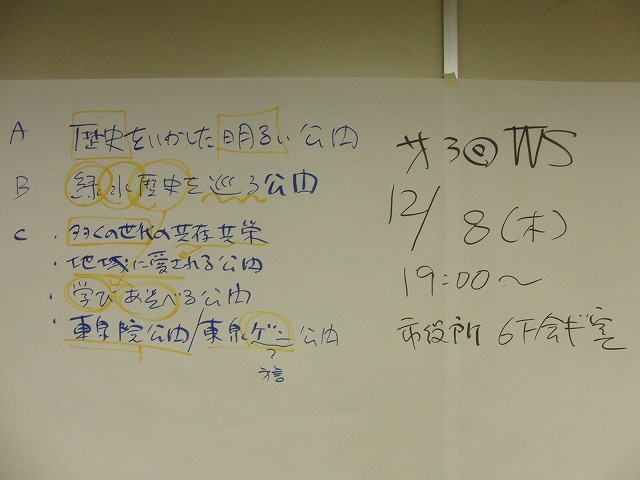 A 歴史をいかした明るい公園
B 緑水歴史を巡る公園
C ・多くの世代の共存共栄
・地域に愛される公園
・学びあそべる公園
・東泉院公園/東泉ゲン公園
?
方言
第3回WS
12/8(木)
19:00〜
市役所 6F会ギ室